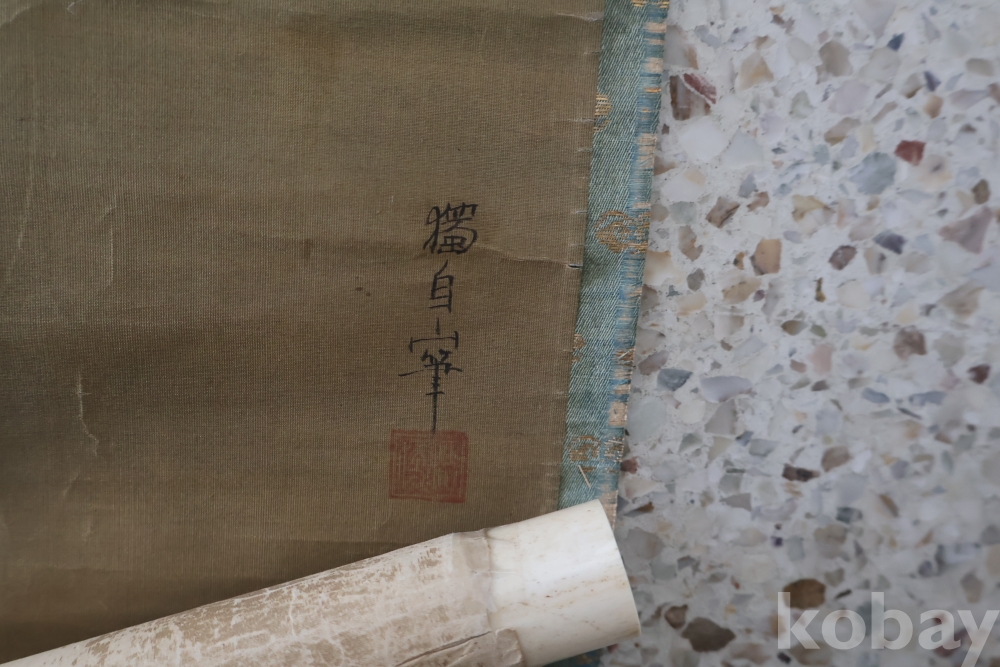 獨自山筆
kobay